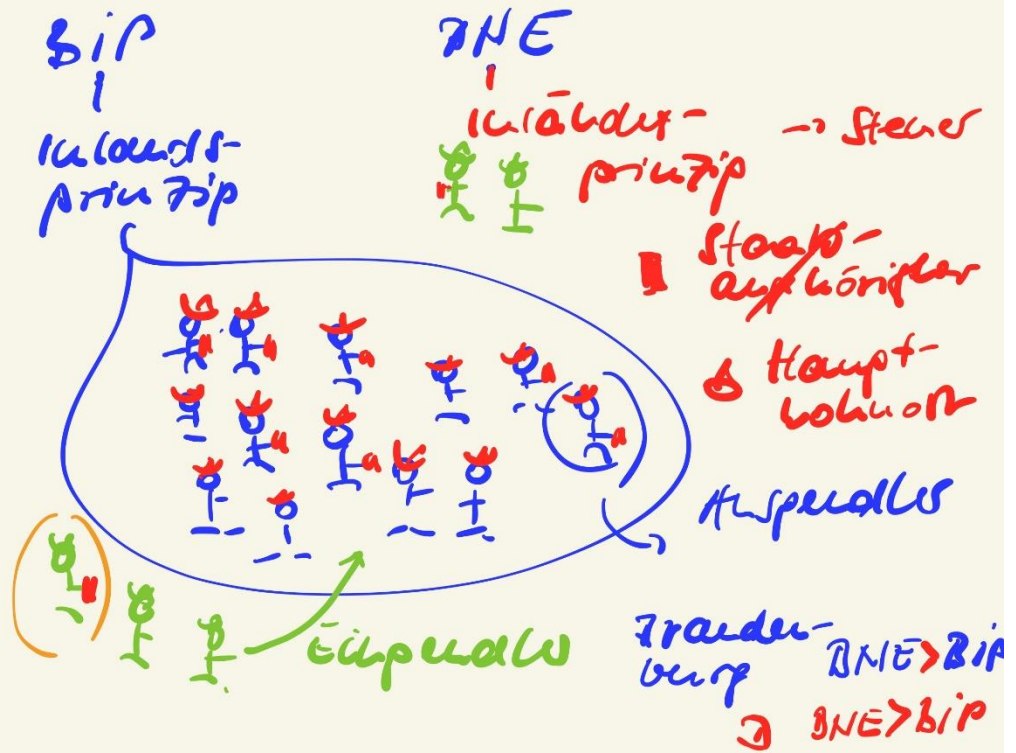 BIP
BNE
Inlands-
prinzip
Inländer-
prinzip
→ Steuer
Staats-
angehöriger
Haupt-
wohnort
Auspendler
Einpendler
Branden-
burg
BNE>BIP
D BNE>BIP